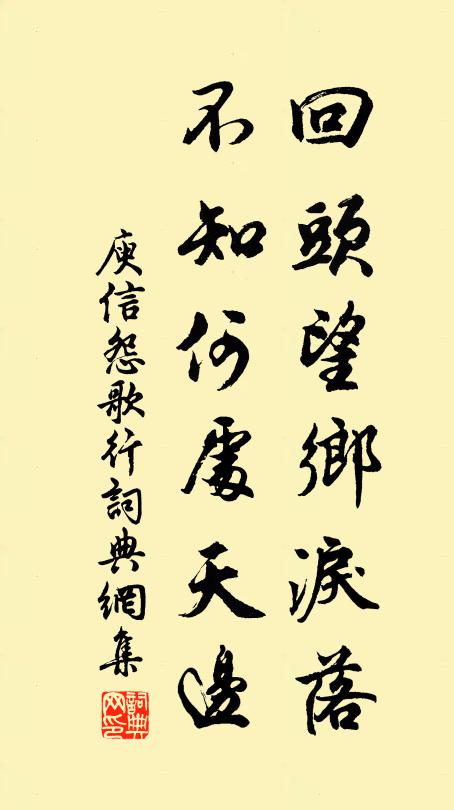 回頭望鄉淚落
不知何處天邊
庾信怨歌行詞典網集
詞典网印